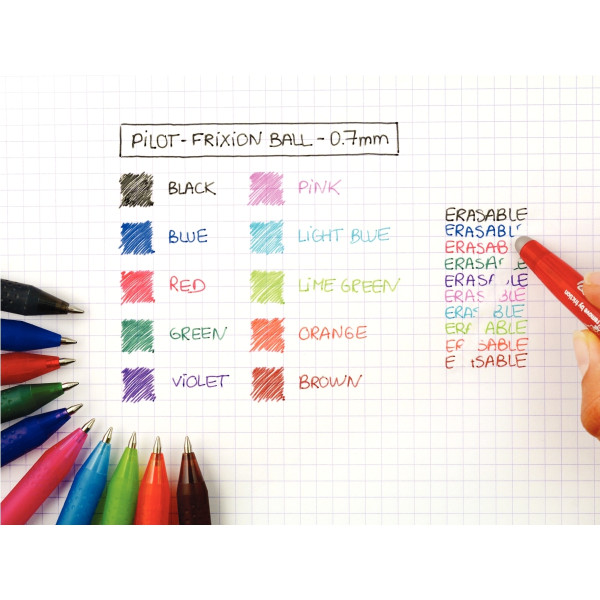 PILOT - FRIXION BALL - 0.7mm
BLACK
BLUE
RED
GREEN
VIOLET
PINK
LIGHT BLUE
LIME GREEN
ORANGE
BROWN
ERASABLE
ERASABL
ERASAB
ERASA LE
ERAS BLE
ERAS BLE
ERA ABLE
ERA ABLE
ER SABLE
E SABLE